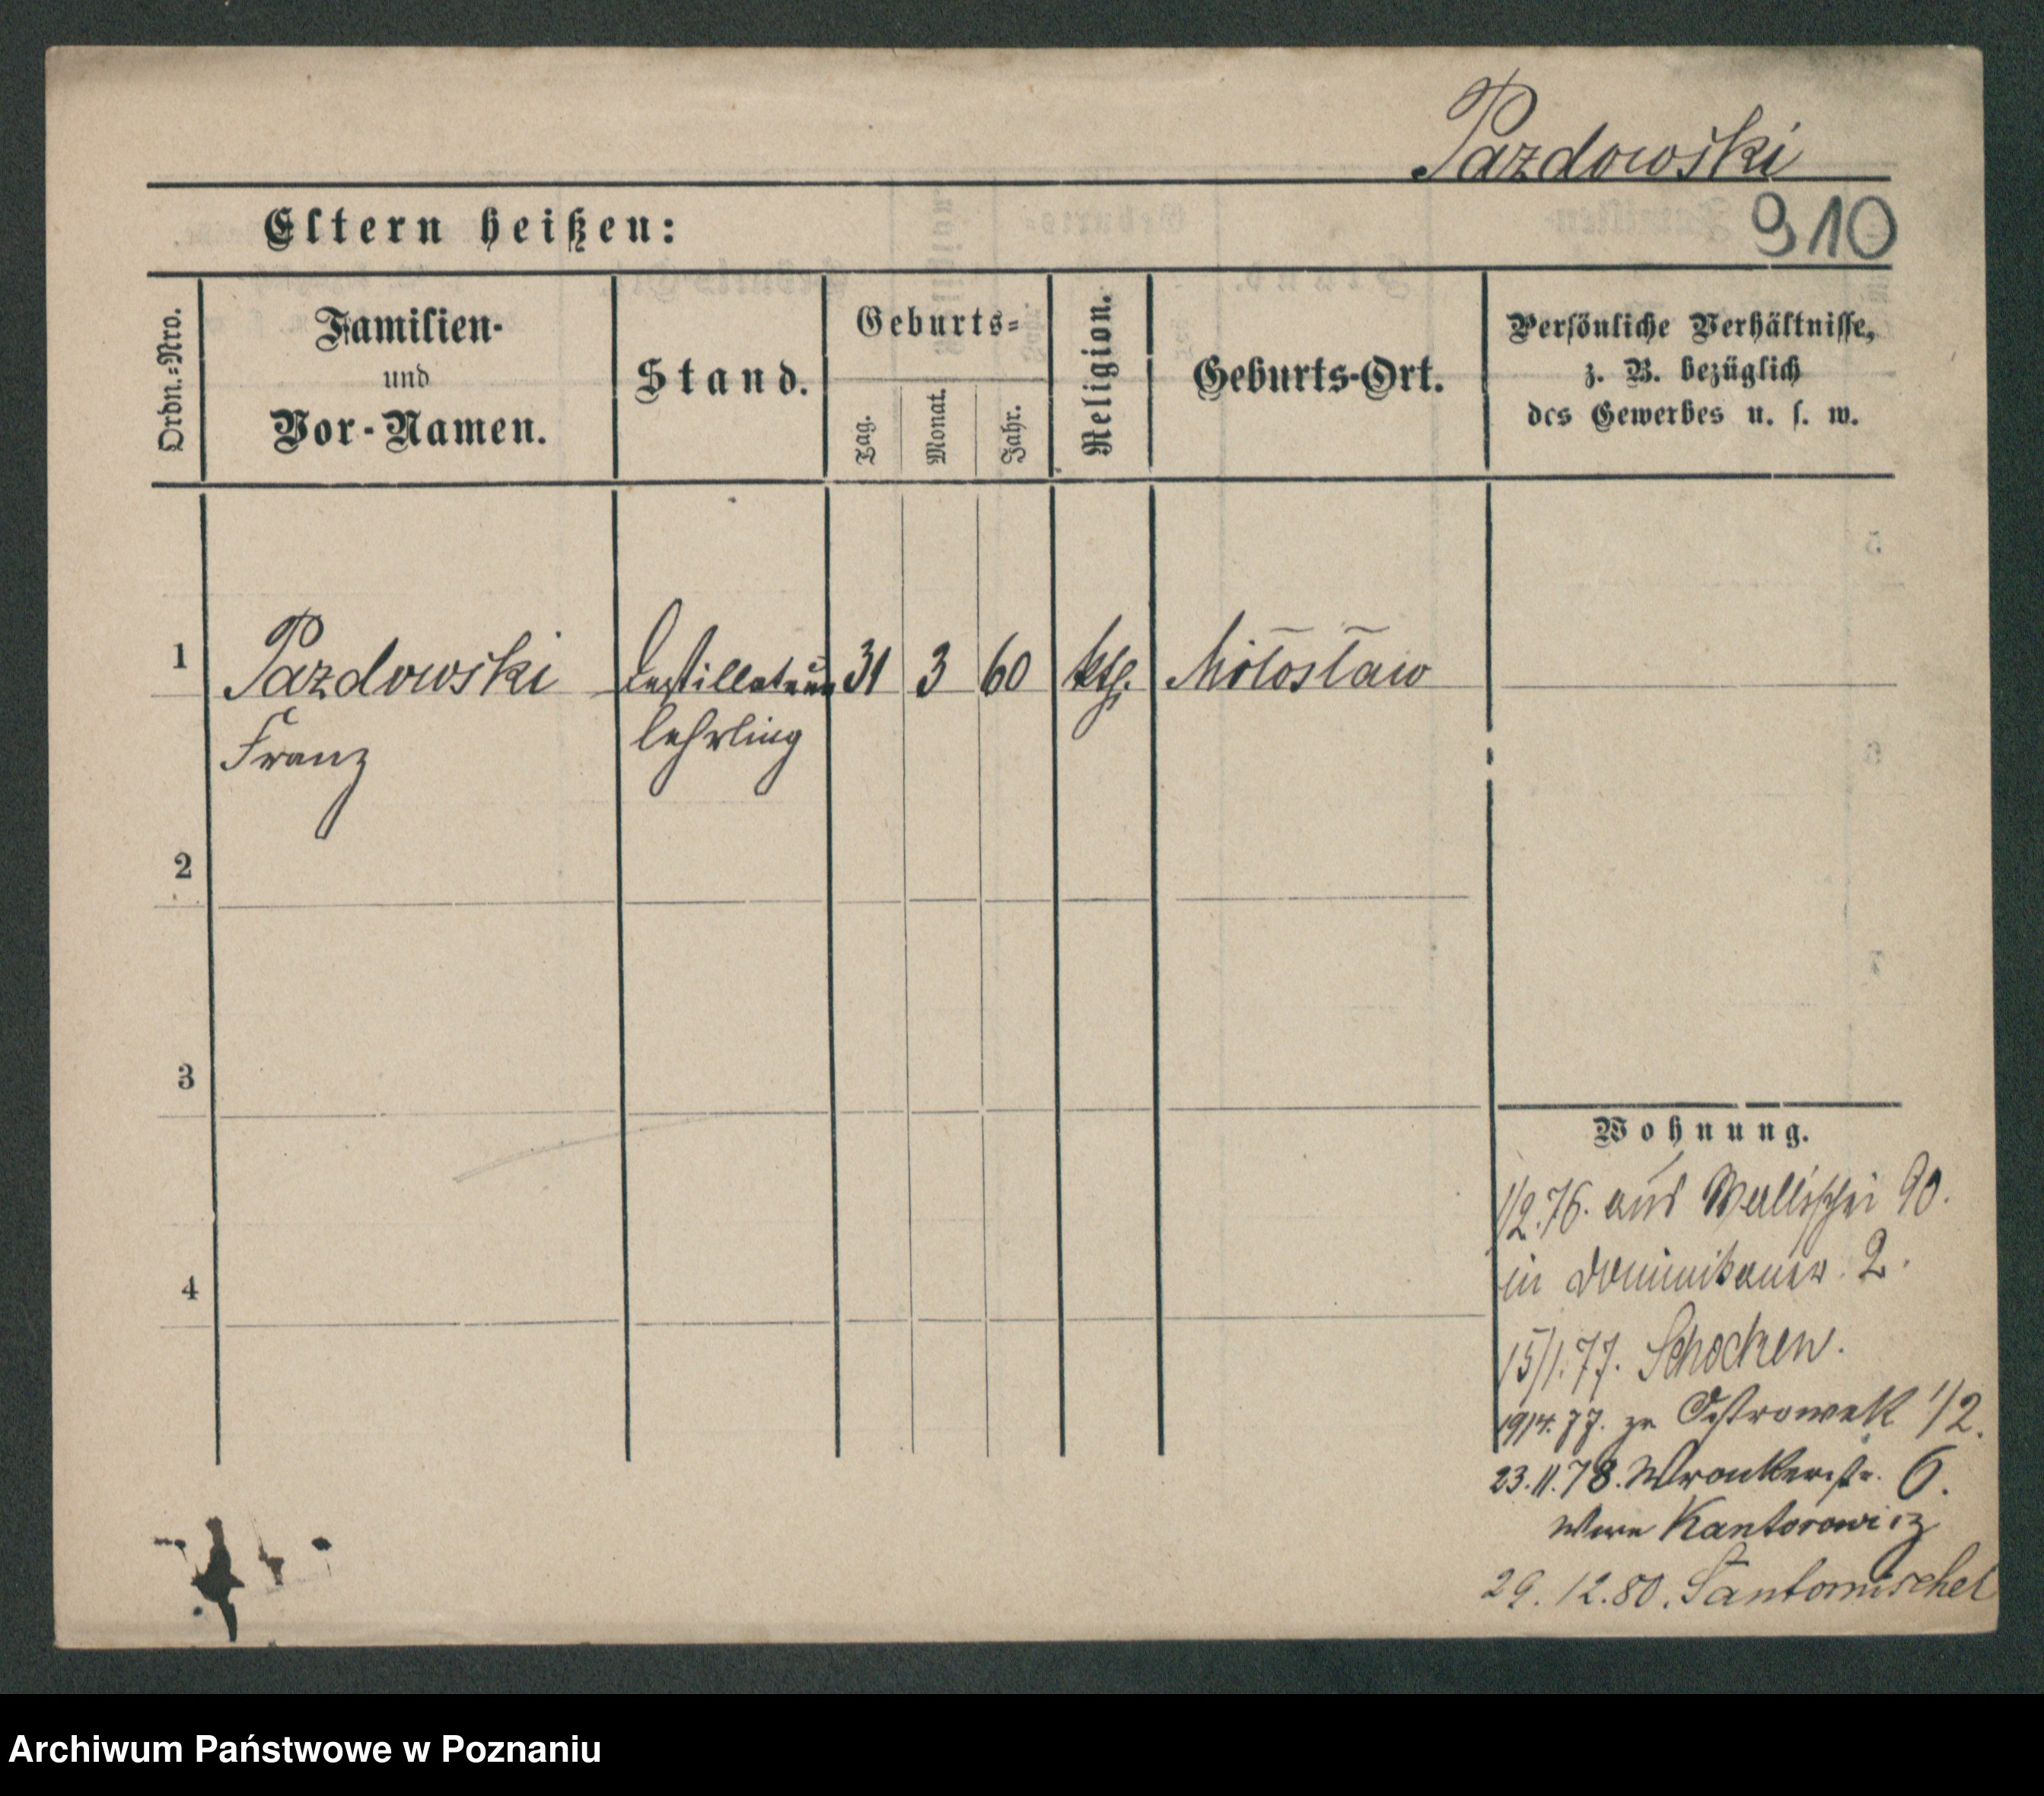 Pazdowski
910
Eltern heißen:
Ordn.=Nro.
Familien-
und
Vor-Namen.
Stand.
Geburts=
Tag.
Monat.
Jahr.
Religion.
Geburts-Ort.
Persönliche Verhältnisse,
z. B. bezüglich
des Gewerbes u. s. w.
1 Pazdowski Destillateur 31 3 60 kth. Miłosław
Franz lehrling
2
3
4
Wohnung.
1/2.76. aus Wallischei 90.
in Dominikaner. 2.
15/1.77. Schocken.
19/4.77. zr Ostrowek 1/2.
23.11.78. Wronkerstr. 6.
Kantorowicz
29.12.80. Santomischel
Archiwum Państwowe w Poznaniu